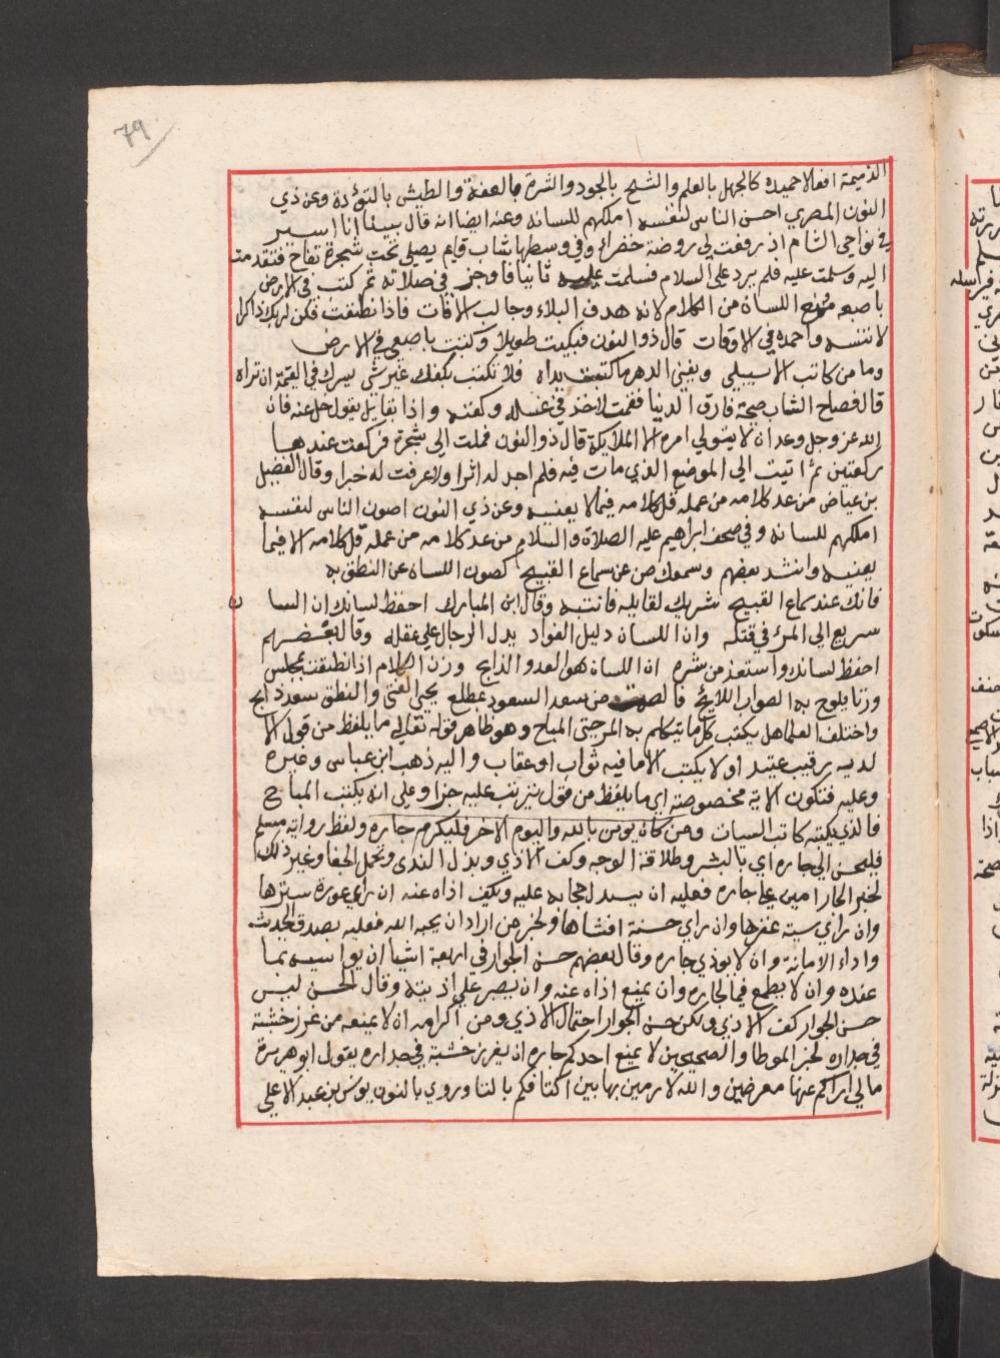 79
الذميمة افعالا حميدة كالجهل بالعلم والشح بالجود والشرة بالعفة والطيش بالتؤدة وعن ذي
النون المصري احسن الناس لنفسه املكهم للسانه وعنه ايضا انه قال بينا انا اسير
في نواحي الشام اذ وقفت لي روضة خضرا وفي وسطها شاب قايم يصلي تحت شجرة تفاح فتقدمت
اليه وسلمت عليه فلم يرد علي السلام فسلمت عليه ثانيا فاوجز في صلاته ثم كتب في الارض
باصبعه منع اللسان من الكلام لانه هدف البلاء وجالب الافات فاذا نطقت فكن لربك ذاكرا
لا تنسه واحمده في الاوقات قال ذو النون فبكيت طويلا وكتبت باصبعي في الارض
وما من كاتب الا سيبلي ويفني الدهر ما كتبت يداه فلا تكتب بكفك غير شي يسرك في القيمة ان تراه
قال فصاح الشاب صيحة فارق الدنيا فقمت لاخذ في غسله وكفنه واذا بقايل يقول خل عنه فان
الله عز وجل وعد ان لا يتولي امره الا الملايكة قال ذو النون فملت الي شجرة فركعت عندها
ركعتين ثم اتيت الي الموضع الذي مات فيه فلم اجد له اثرا ولا عرفت له خبرا وقال الفضيل
بن عياض من عد كلامه من عمله قل كلامه فيما لا يعنيه وعن ذي النون اصون الناس لنفسه
املكهم للسانه وفي صحف ابراهيم عليه الصلاة والسلام من عد كلامه من عمله قل كلامه الا فيما
يعنيه وانشد بعضهم وسمعك صن عن سماع القبيح كصون اللسان عن النطق به
فانك عند سماع القبيح شريك لقايله فانتبه وقال ابن المبارك احفظ لسانك ان اللسا ن
سريع الي المرء في قتله وان اللسان دليل الفواد يدل الرجال علي عقله وقال بعضهم
احفظ لسانك واستعذ من شره ان اللسان هو العدو الذابح وزن الكلام اذا نطقت بمجلس
وزنا يلوح به الصواب اللايح فالصمت من سعد السعود بمطلع يحيي الفتي والنطق سعد ذابح
واختلف العلما هل يكتب كل ما يتكلم به المرء حتي المباح وهو ظاهر قوله تعالي ما يلفظ من قول الا
لديه رقيب عتيد او لا يكتب الا ما فيه ثواب او عقاب واليه ذهب ابن عباس وغيره
وعليه فتكون الاية مخصوصة اي ما يلفظ من قول يترتب عليه جزا وعلي انه يكتب المباح
فالذي يكتبه كاتب السيات ومن كان يومن بالله واليوم الاخر فليكرم جاره ولفظ رواية مسلم
فليحسن الي جاره اي بالبشر وطلاقة الوجه وكف الاذي وبذل الندي وتحمل الجفا وغير ذلك
لخبر الجار امين علي جاره فعليه ان يسدل حجابه عليه ويكف اذاه عنه ان راي عورة سترها
وان راي سية غفرها وان راي حسنة افشاها ولخبر من اراد ان يحبه الله فعليه بصدق الحديث
واداء الامانة وان لا يوذي جاره وقال بعضهم حسن الجوار في اربعة اشيا ان يواسيه بما
عنده وان لا يطمع فيما لجاره وان يمنع اذاه عنه وان يصبر علي اذيته وقال الحسن ليس
حسن الجوار كف الاذي ولكن حسن الجوار احتمال الاذي ومن اكرامه ان لا يمنعه من غرز خشبة
في جداره لخبر الموطا والصحيحين لا يمنع احدكم جاره ان يغرز خشبة في جداره يقول ابو هريرة
مالي اراكم عنها معرضين والله لارمين بها بين اكتافكم بالتا وروي بالنون يونس بن عبد الاعلي